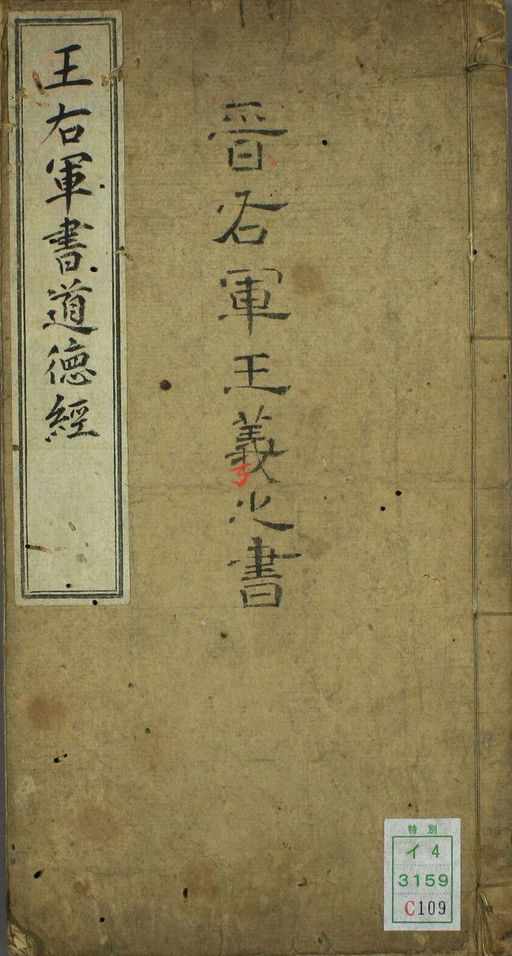 晋右軍王羲之書
王右軍書道徳經
特別
イ4
3159
C109